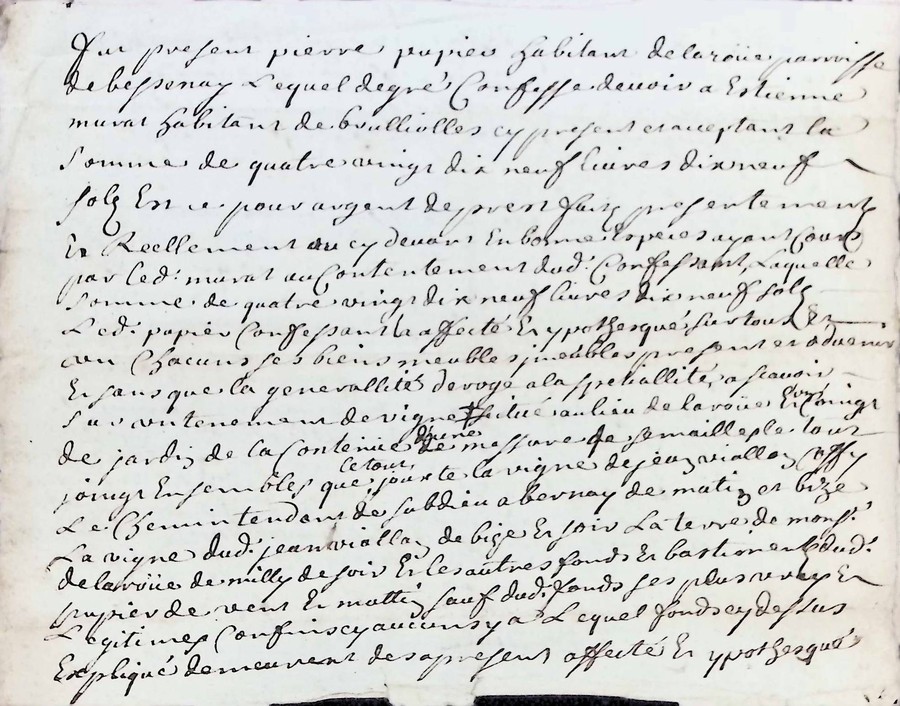 Fut present pierre papier habitant delaroüe parroisse
de bessenay Lequel degré Confesse devoir a Estienne
murat habitant de brulliolles cy present et acceptant la
somme de quatre vingt dix neuf livres dix neuf
solz Est ce pour argent de prest faitz presentement
Et Reellement cy devant En bonne Especes ayant Cours
par led. murat au Contentement dud. Confessant, Laquelle
somme de quatre vingt dix neuf livres dix neuf solz
Led. papier Confessant a affecté Et ypothesqué sur tous Et
un Chacuns ses biens meubles jmeubles present et advenir
En sans que la generallité deroge a la spetiallité, a scavoir
Sur un tenement de vigne situé au lieu de laroüe Et Coings
de jardin de la Contenue d'une massure de semaille le tout
joingt Ensembles que jouxte la vigne de jean viallon
Le Chemin tendant de subdieu a bernay de matin et bize
La vigne dud. jean viallon de bize Et soir La terre de mons.
de laroüe de milly de soir Et les autres fonds Et bastiments dud.
papier de vent Et mattin sauf dud. fonds ses plus vray Et
Legitimes Confins cy aucuns y a Lequel fonds cy dessus
Expliqué demeurent des a present affecté Et ypothesqué